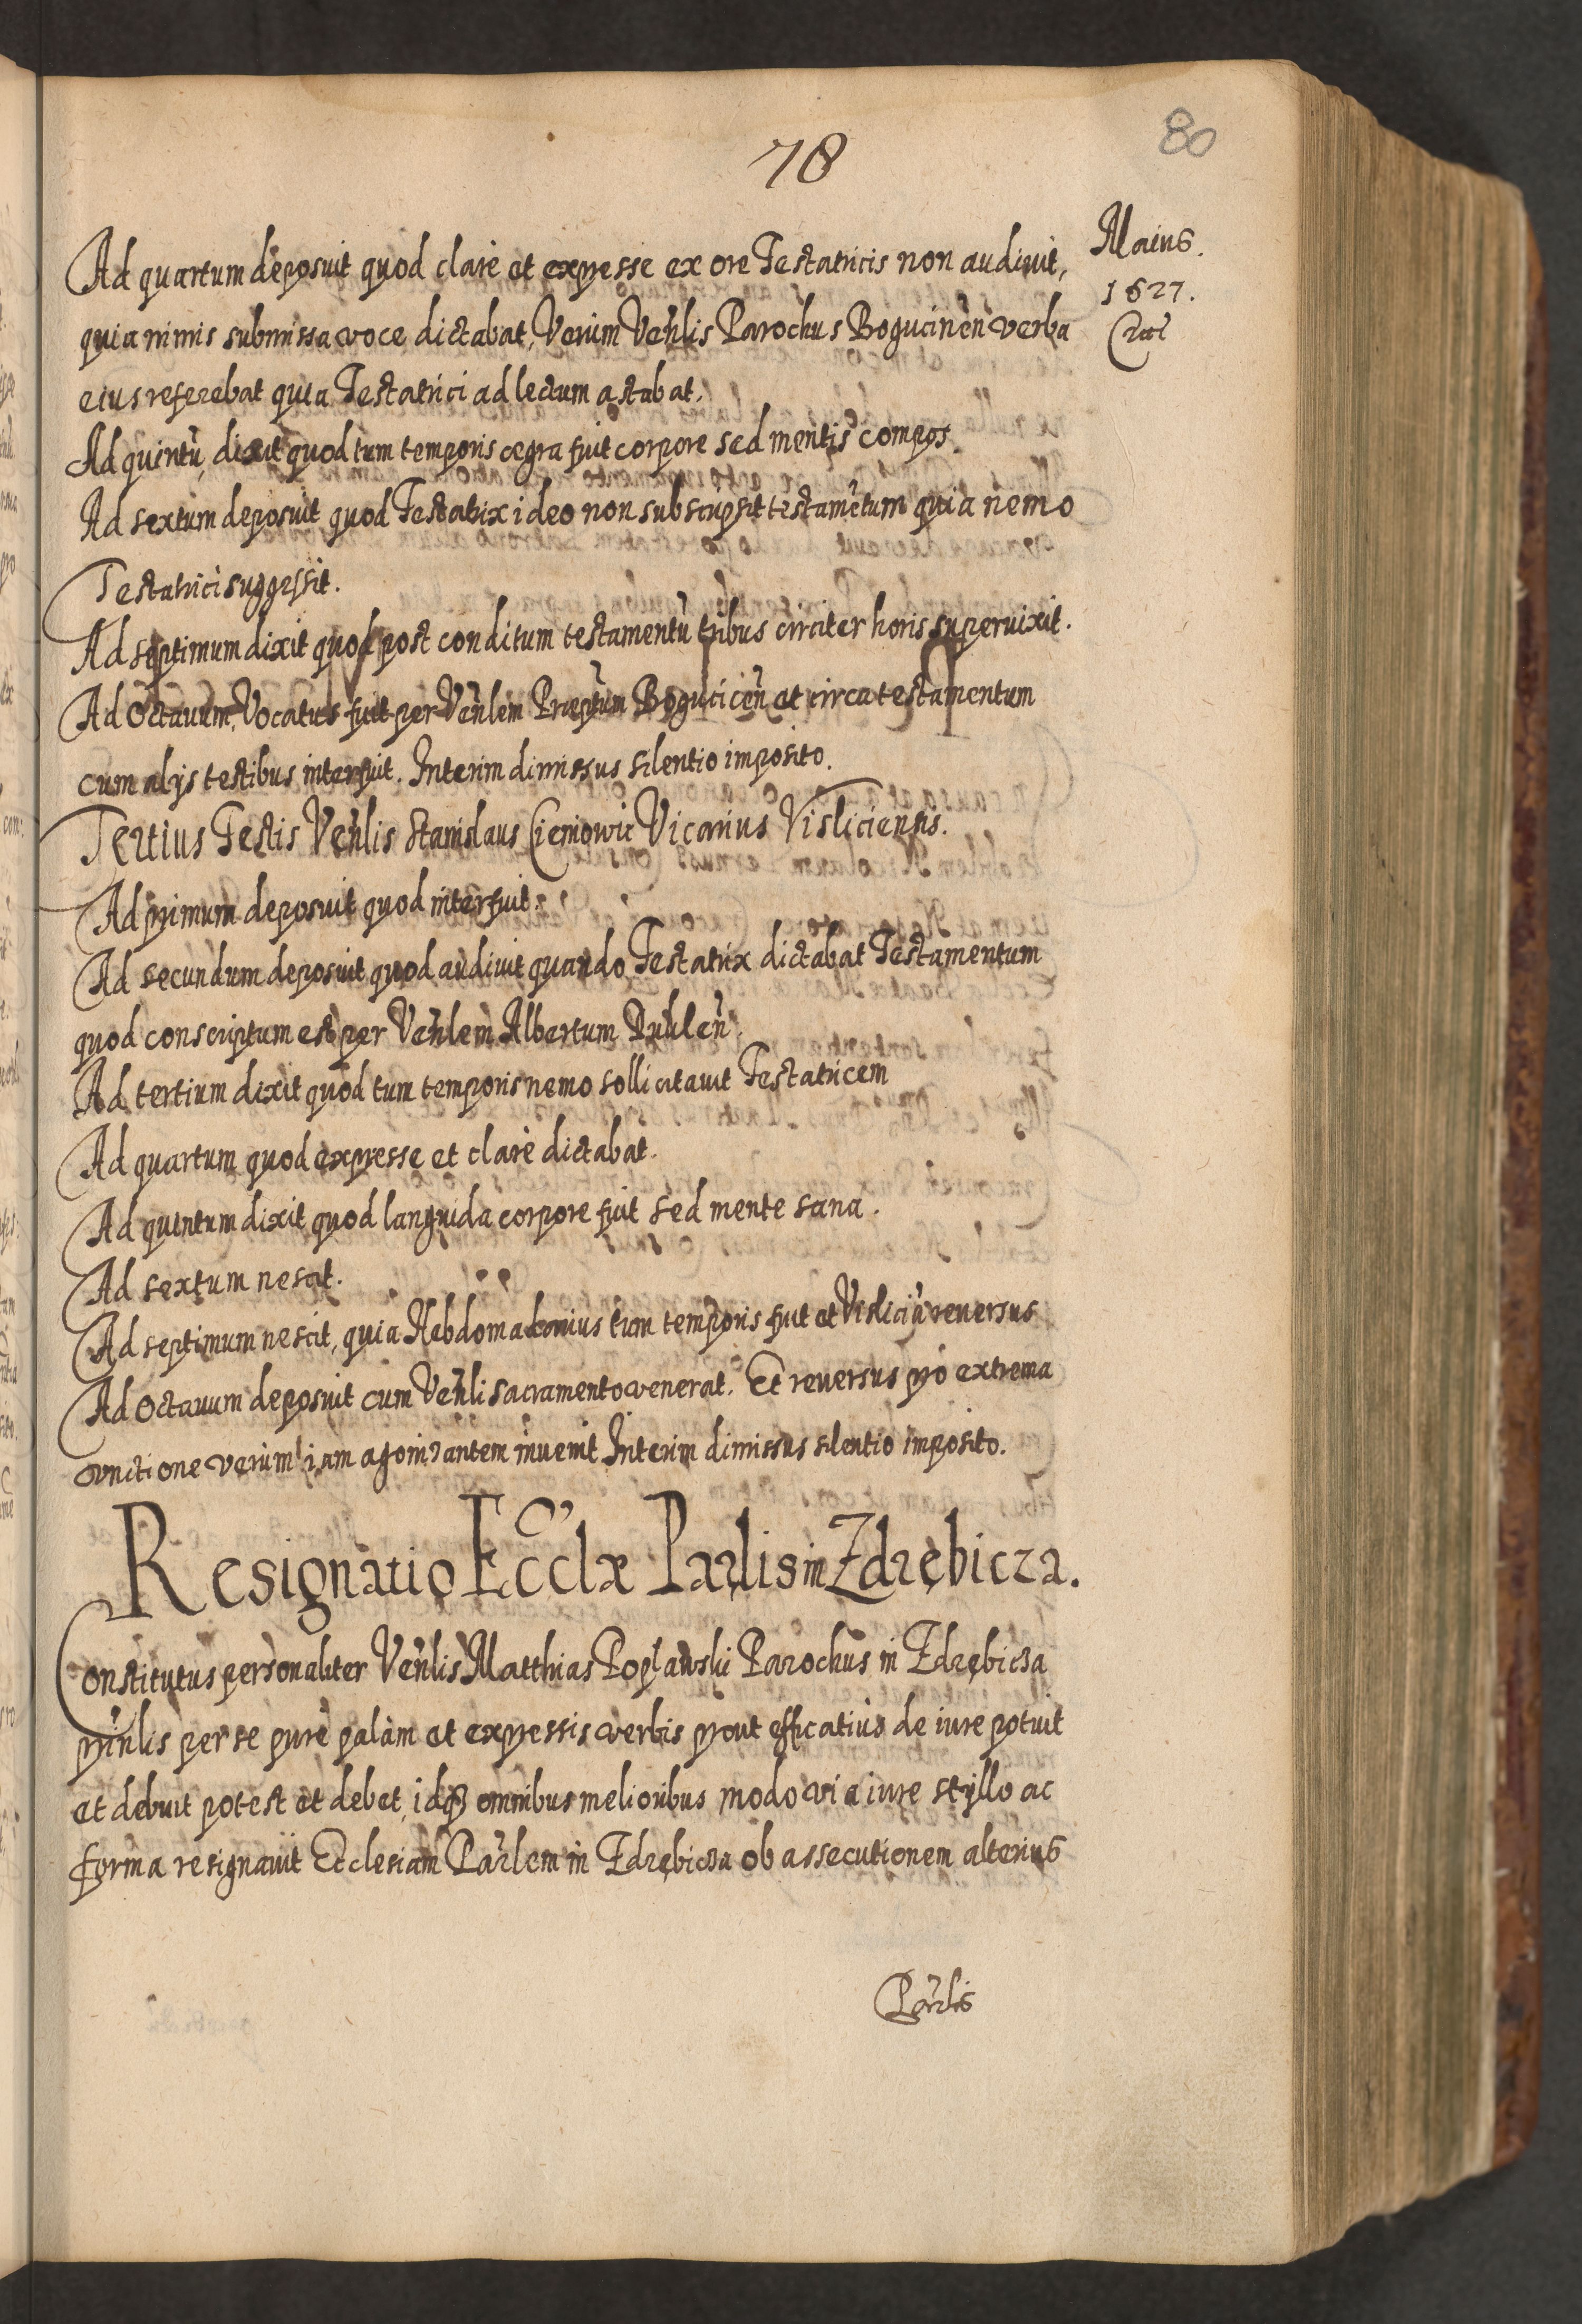 78
80
Maius.
1627.
Crac̃
Ad quartum deposuit quod clarè et expresse ex ore Testatricis non audiuit,
quia nimis submissa voce dictabat, Verùm Veñlis Parochus Bogucineñ verba
eius referebat quia Testatrici ad lectum astabat.
Ad quintũ, dixit quod tum temporis aegra fuit corpore sed mentis compos.
Ad sextum deposuit quod Testatrix ideo non subscripsit testamẽtum quia nemo
Testatrici suggessit.
Ad septimum dixit quod post conditum testamentũ tribus circiter horis superuixit.
Ad Octauum, Vocatus fuit per Veñlem Praeptum Boguciceñ et circa testamentum
cum alijs testibus interfuit. Interim dimissus silentio imposito.
Tertius Testis Veñlis Stanislaus Cieniowic Vicarius Visliciensis.
Ad primum deposuit quod interfuit.
Ad secundum deposuit quod audiuit quando Testatrix dictabat Testamentum
quod conscriptum est per Veñlem Albertum
Ad tertium dixit quod tum temporis nemo sollicitauit Testatricem
Ad quartum quod expresse et clarè dictabat.
Ad quintum dixit quod languida corpore fuit sed mente sana.
Ad sextum nescit.
Ad septimum nescit, quia Hebdomadarius tum temporis fuit et Visliciã reuersus
Ad Octauum deposuit cum Veñli sacramento venerat. Et reuersus pro extrema
vnctione verùm iam agonizantem inuenit Interim dimissus silentio imposito.
Resignatio Eccl̃ae Parl̃is in Zdrębicza.
Constitutus personaliter Veñlis Matthias Popławski Parochus in Zdrębicza
prñlis per se purè palàm et expressis verbis prout efficatius de iure potuit
et debuit potest et debet, idqȝ omnibus melioribus modo via iure styllo ac
forma resignauit Ecclesiam Parl̃em in Zdrębicza ob assecutionem alterius
Parl̃is